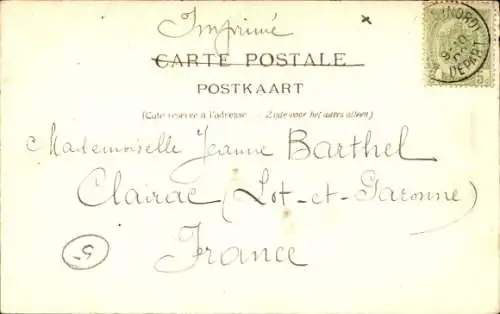 Imprimé
CARTE POSTALE
POSTKAART
(Côté réservé à l'adresse. - Zijde voor het adres alleen)
Mademoiselle Jeanne Barthel
Clairac (Lot-et-Garonne)
France
5
(NORD)
DEPART
5